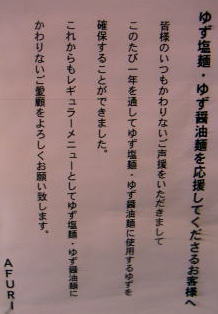 ゆず塩麺・ゆず醤油麺を応援してくださるお客様へ
皆様のいつもかわりないご声援をいただきまして
このたび一年を通してゆず塩麺・ゆず醤油麺に使用するゆずを
確保することができました。
これからもレギュラーメニューとしてゆず塩麺・ゆず醤油麺に
かわりないご愛顧をよろしくお願い致します。
AFURI